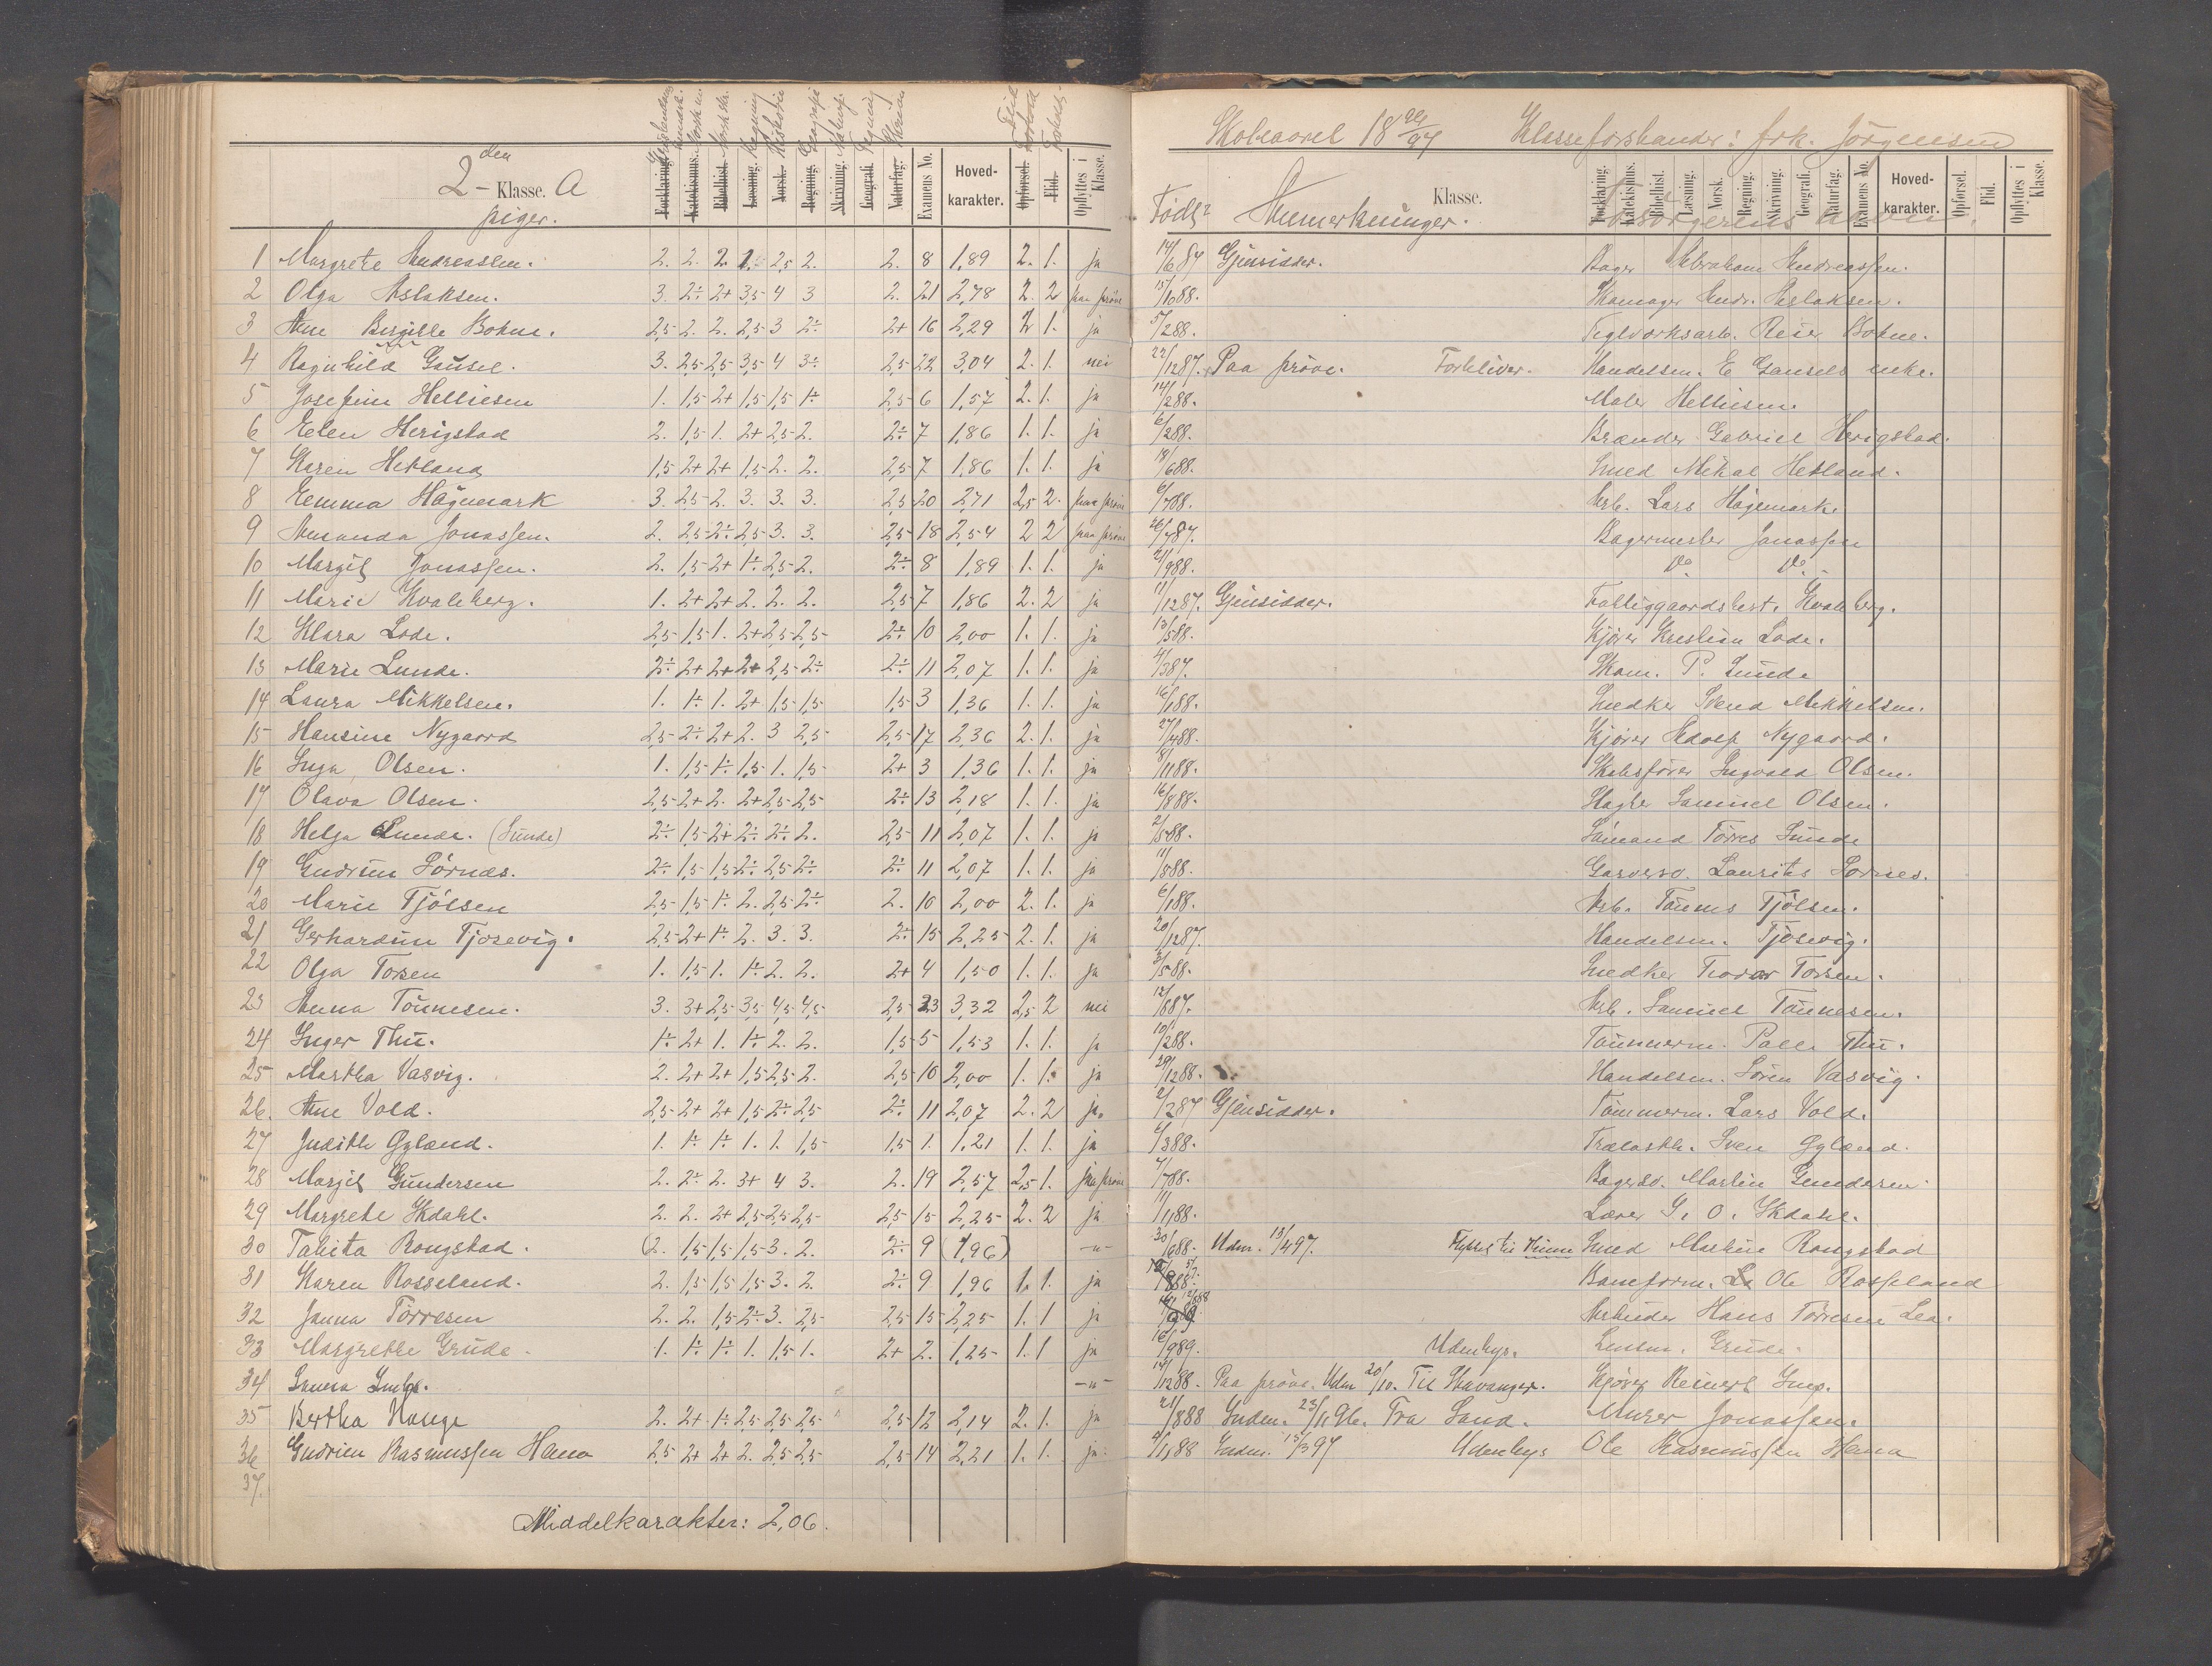 Skoleaaret 18 96/97 Klasseforstander: frk. Jörgensen
2den Klasse. A
piger.
Examens No. Hoved-karakter. Opførsel. Flid. Opflyttes i Klasse.
Født: Anmerkninger. Klasse. Forsörgerens navn.
Forklaring. Katekismus. Bibelhist. Læsning. Norsk. Regning. Skrivning. Geografi. Naturfag. Examens No. Hoved-karakter. Opførsel. Flid. Opflyttes i Klasse.
1 Margrete Andreassen. 2. 2. 2. 2,5 2. 2. 8 1,89 2. 1. ja 14/6 87 Gjensidder. Bager Abraham Andreassen.
2 Olga Aslaksen. 3. 2÷ 2+ 3,5 4 3 2. 21 2,78 2. 2 paa pröve 15/10 88. Skomager Andr. Aslaksen.
3 Ane Bergitte Bokne. 2,5 2. 2. 2,5 3 2÷ 2+ 16 2,29 2 1. ja 5/2 88. Teglverksarb. Reier Bokne.
4 Ragnhild Gausel. 3. 2,5 2,5 3,5 4 3÷ 2,5 22 3,04 2. 1. nei 22/12 87. Paa pröve. Forbliver. Handelsm. E Gausels enke.
5 Josefine Helliesen 1. 1,5 2+ 1,5 1,5 1÷ 2,5 6 1,57 2. 1. ja 14/2 88. Maler Helliesen.
6 Elen Herigstad 2. 1,5 1. 2+ 2,5 2. 2÷ 7 1,86 1. 1. ja 6/2 88. Brænder Gabriel Herigstad.
7 Karen Hetland 1,5 2+ 2+ 1,5 2. 2. 2,5 7 1,86 1. 1. ja 18/6 88. Smed Mikal Hetland.
8 Emma Hagemark 3. 2,5 2. 3. 3. 3. 2,5 20 2,71 2,5 2. paa pröve 6/7 88. Arb. Lars Hagemark.
9 Amanda Jonassen. 2. 2,5 2÷ 2,5 3. 3. 2,5 18 2,54 2 2 paa pröve 26/7 87. Bagermester Jonassen
10 Margit Jonassen. 2. 1,5 2+ 1÷ 2,5 2. 2÷ 8 1,89 1. 1. ja 21/9 88. Do Do
11 Marie Kvaleberg. 1. 2+ 2+ 2. 2. 2. 2,5 7 1,86 2. 2 ja 11/12 87. Gjensidder. Fattiggaardsbest. Kvaleberg.
12 Klara Lode. 2,5 1,5 1. 2+ 2,5 2,5 2÷ 10 2,00 1. 1. ja 13/5 88. Kjörer Kristian Lode.
13 Marie Lunde. 2÷ 2+ 2+ 2+ 2,5 2÷ 2÷ 11 2,07 1. 1. ja 4/3 87. Skom. P. Lunde
14 Laura Mikkelsen. 1. 1÷ 1. 2+ 1,5 1,5 1,5 3 1,36 1. 1. ja 16/1 88. Snedker Svend Mikkelsen.
15 Hansine Nygaard 2,5 2÷ 2+ 2. 3 2,5 2,5 17 2,36 2. 1. ja 27/4 88. Kjörer Adolf Nygaard.
16 Inga Olsen. 1. 1,5 1÷ 1,5 1. 1,5 2+ 3 1,36 1. 1. ja 8/11 88. Skibsförer Ingvald Olsen.
17 Olava Olsen. 2,5 2+ 2. 2+ 2,5 2,5 2÷ 13 2,18 1. 1. ja 16/8 88. Slagter Samuel Olsen.
18 Helga Sunde. (Sunde) 2÷ 1,5 2+ 2÷ 2÷ 2. 2,5 11 2,07 1. 1. ja 2/5 88. Sömand Törres Sunde
19 Gudrun Sörnæs. 2÷ 1,5 1,5 2÷ 2,5 2÷ 2÷ 11 2,07 1. 1. ja 11/8 88. Garversv. Laurits Sörnes.
20 Marie Tjölsen 2,5 1,5 1÷ 2. 2,5 2÷ 2. 10 2,00 2. 1. ja 6/1 88. Arb. Tönnes Tjölsen.
21 Gerhardine Tjosevig. 2,5 2+ 1÷ 2. 3. 3. 2÷ 15 2,25 2. 1. ja 20/12 87. Handelsm. Tjosevig.
22 Olga Torsen 1. 1,5 1. 1÷ 2. 2. 2+ 4 1,50 1. 1. ja 3/5 88. Snedker Torsen.
23 Anna Tönnesen. 3. 3+ 2,5 3,5 4,5 4,5 2,5 23 3,32 2,5 2 nei 12/8 87. Arb. Samuel Tönnesen.
24 Inger Thu. 1÷ 2+ 1. 1÷ 2. 2. 1,5 5 1,53 1. 1. ja 10/2 88. Tömmerm. Thu.
25 Martha Vasvig. 2. 2+ 2+ 1,5 2,5 2. 2,5 10 2,00 1. 1. ja 29/12 88. Handelsm. Sören Vasvig.
26. Ane Vold. 2,5 2+ 2+ 1,5 2÷ 2,5 2÷ 11 2,07 2. 2 ja. 2/2 87 Gjensidder. Tömmerm. Lars Vold.
27 Judith Gyland. 1. 1÷ 1÷ 1. 1. 1,5 1,5 1. 1,21 1. 1. ja 6/3 88. Trælastb. Sven Gyland.
28 Margit Gundersen 2. 2÷ 2. 3+ 4 3. 2. 19 2,57 2,5 1. paa pröve 4/7 88. Bagersv. Martin Gundersen
29 Margrete Skdahl. 2. 2. 2+ 2,5 2,5 2,5 2,5 15 2,25 2. 2 ja 11/1 88. Lærer G. O. Skdahl.
30 Tabita Rongstad. (2. 1,5 1,5 1,5 3. 2. 2÷ 9 (1,96) -"- 30/6 88. Udm. 13/4 97. Flyttet til Smed Rongstad
31 Karen Rosseland. 2. 1,5 1,5 1,5 3. 2. 2÷ 9 1,96 1. 1. ja Baneform. Ole Rosseland
32 Janna Törresen 2. 2. 1,5 2÷ 3. 2,5 2,5 15 2,25 1. 1 ja Arbeider Hans Törresen Lea.
33 Margrethe Grude. 1. 1÷ 1÷ 1. 1,5 1. 2+ 2. 1,25 1. 1 ja 16/9 89. Udenbys. Lensm. Grude.
34 -"- 14/12 88. Paa pröve. Udm 20/10. Til Stavanger. Kjörer Reinert
35 Bertha Hauge 2. 2+ 1÷ 2,5 2,5 2,5 2,5 12 2,14 2. 1. ja 21/8 88 Indm. 23/11 96. Fra Sand. Murer Jonassen.
36 Gudrun Rasmussen Hana 2,5 2+ 2+ 2. 2,5 2,5 2,5 14 2,21 1. 1. ja. 2/11 88 Indm. 15/3 97 Udenbys Ole Rasmussen Hana
37.
Middelkarakter: 2,06.